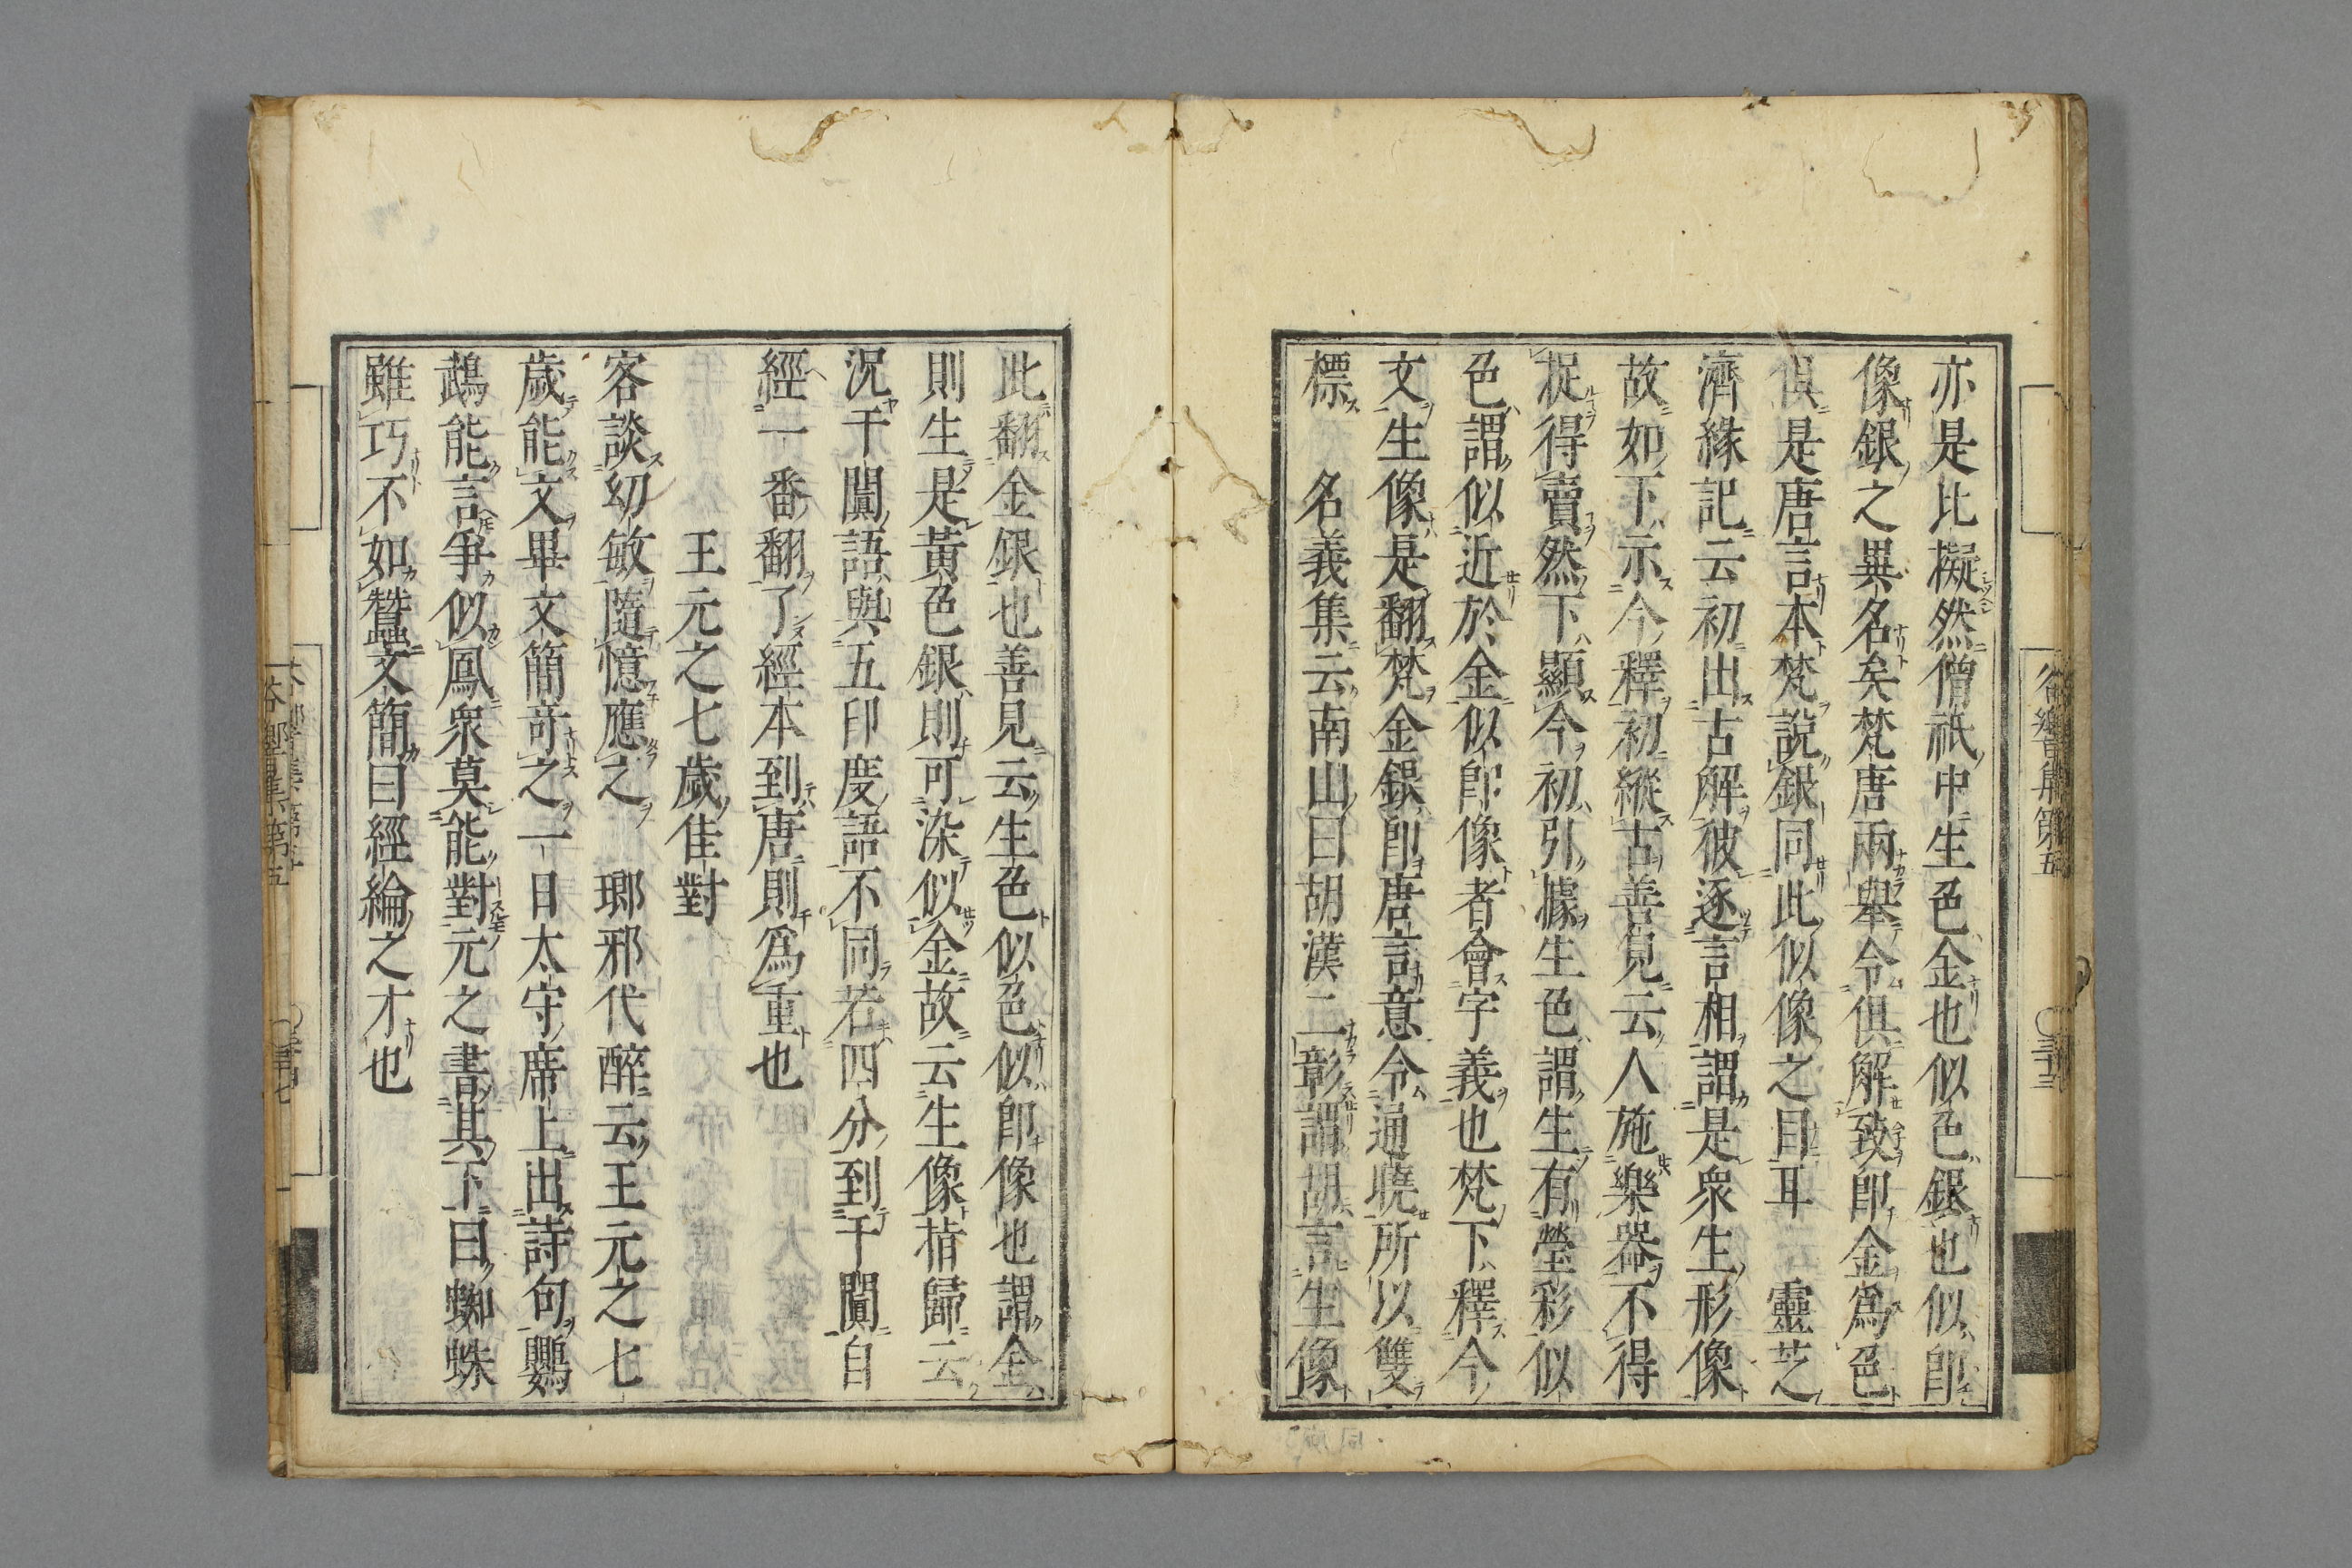 亦是比擬然僧祇中生色金也似色銀也似即
像銀之異名矣梵唐兩舉令俱解致即金爲色
俱是唐言本梵說銀同此似像之目耳 靈芝
濟緣記云初出古解彼逐言相謂是衆生形像
故如下示今釋初縱古善見云人施樂器不得
捉得賣然下顯今初引據生色謂生有瑩彩似
色謂似近於金似即像者會字義也梵下釋今
文生像是翻梵金銀即唐言意令通曉所以雙
標 名義集云南山曰胡漢二彰謂胡言生像
此翻金銀也善見云生色似色似即像也謂金
則生是黃色銀則可染似金故云生像指歸云
況于闐語與五印度語不同若四分到于闐自
經一番翻了經本到唐則爲重也
王元之七歲佳對
客談幼敏隨憶應之 瑯邪代醉云王元之七
歲能文畢文簡竒之一日太守席上出詩句鸚
鵡能言爭似鳳衆莫能對元之書其下曰蜘蛛
雖巧不如蠶文簡曰經綸之才也